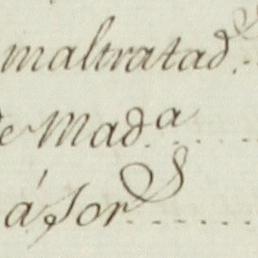 maltratad.s
de Mad.a
á Jors